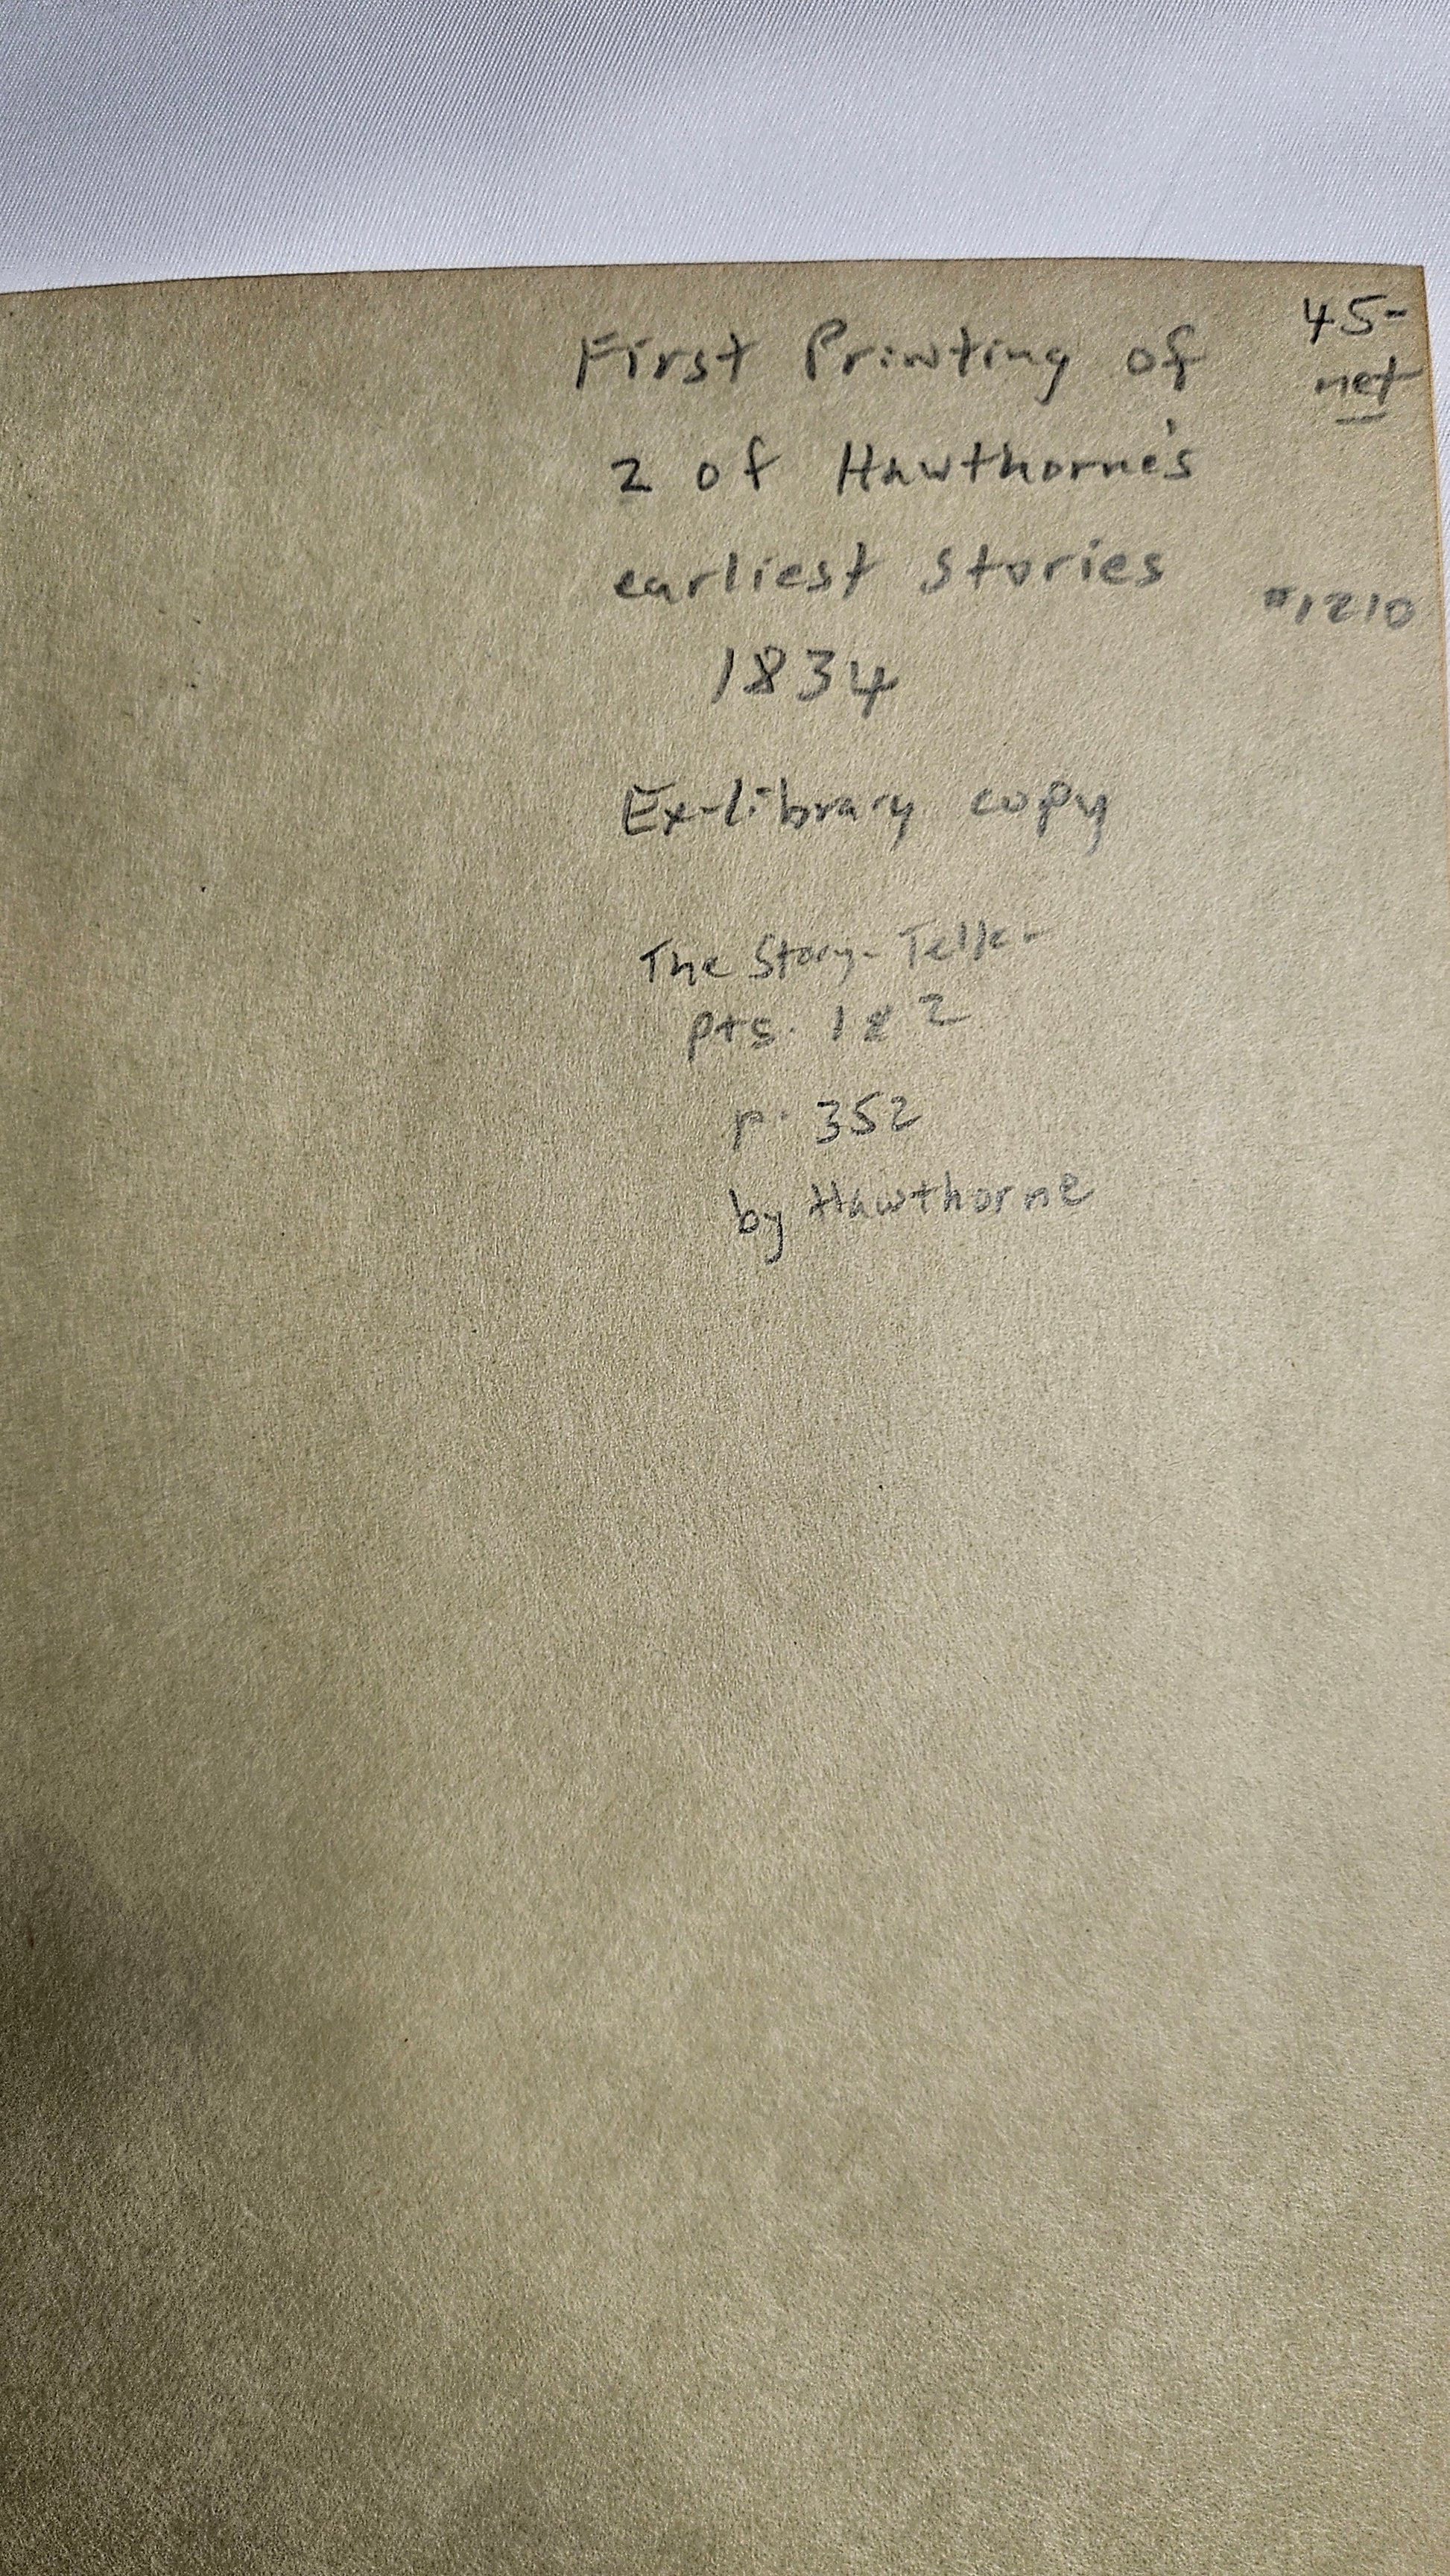 45-
net
First Printing of
2 of Hawthorne's
earliest stories
#1210
1834
Ex-library copy
The Story-Teller
pts. 1 & 2
p. 352
by Hawthorne